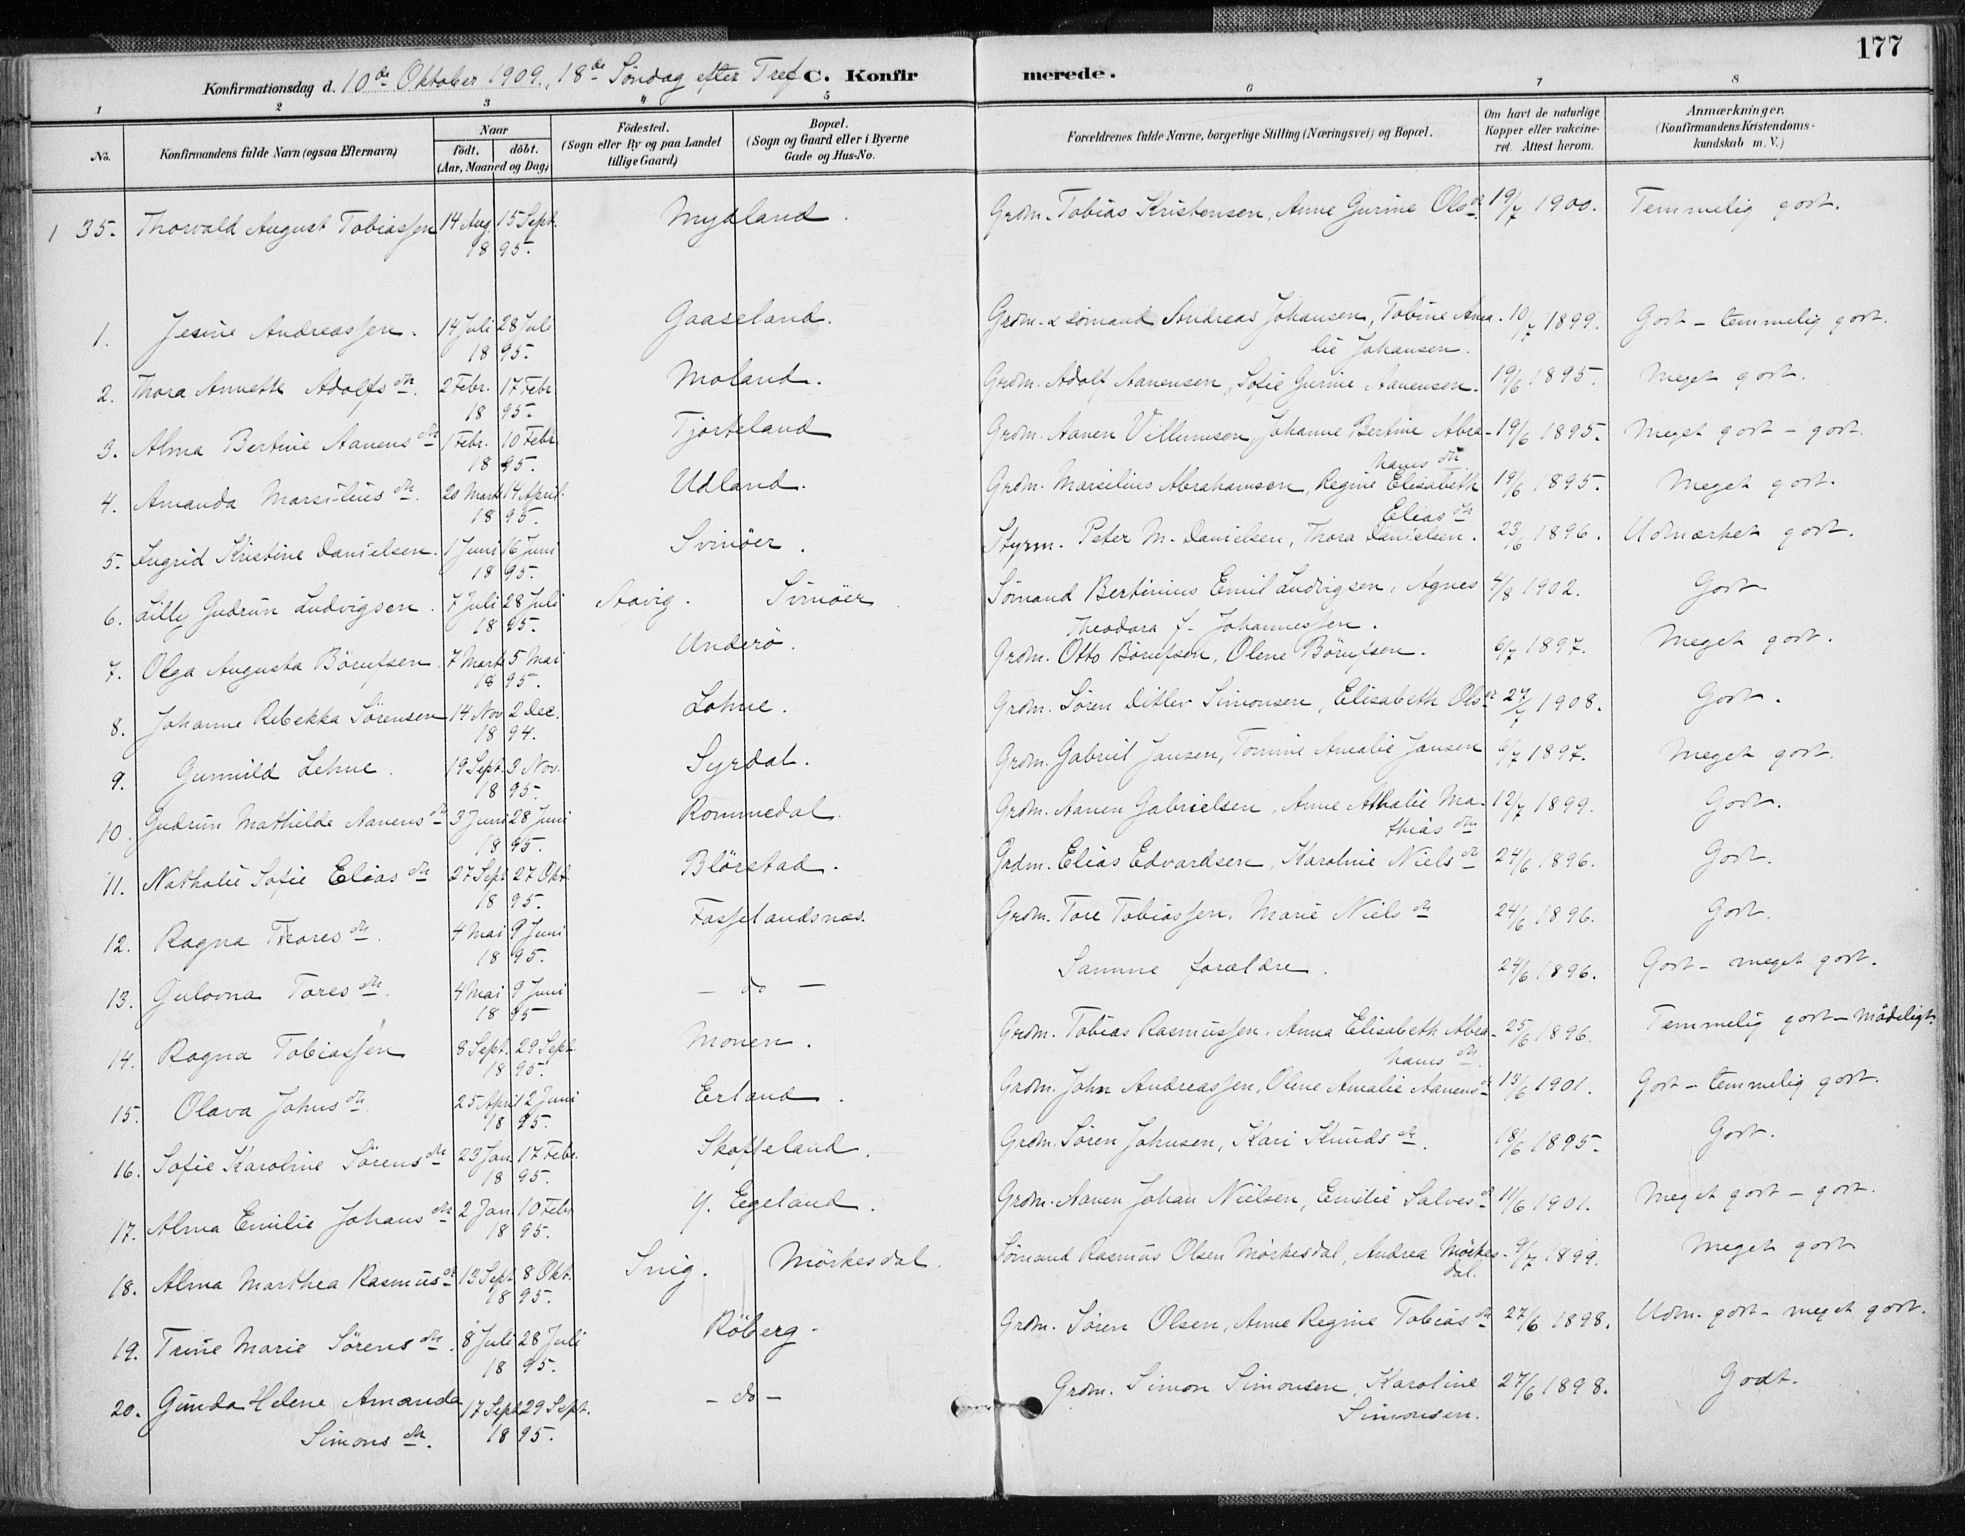 177
Konfirmationsdag d. 10de Oktober 1909, 18de Søndag efter Tref. C. Konfirmerede.
1 2 3 " 5 6 7 8
No. Konfirmandens fulde Navn (ogsaa Efternavn) Naar født. døbt. (Aar, Maaned og Dag) Fødested. (Sogn eller By og paa Landet tillige Gaard) Bopæl. (Sogn og Gaard eller i Byerne Gade og Hus-No. Forældrenes fulde Navne, borgerlige Stilling (Næringsvei) og Bopæl. Om havt de naturlige Kopper eller vakcineret. Attest herom. Anmærkninger. (Konfirmandens Kristendomskundskab m. V.)
1 35. Thorvald August Tobiassen 14 Aug. 15 Sept. Mydland. Grdm. Tobias Kristensen, Anne Gurine Olsdr 19/7 1900. Temmelig godt.
18 95.
1. Jesine Andreassen. 14 Juli 28 Juli Gaaseland. Grdm. & sømand Andreas Johansen, Tobine Ama- 10/7 1899. Godt - temmelig godt.
18 95. lie Johansen.
2. Thora Annette Adolfsdtr. 2 Febr. 17 Febr Moland. Grdm. Adolf Aanensen, Sofie Gurine Aanensen. 19/6 1895. Meget godt.
18 95.
3. Alma Bertine Aanensdtr 1 Febr. 10 Febr Tjorteland Grdm. Aanen Villumsen, Johanne Bertine Abra- 19/6 1895. Meget godt - godt.
18 95. hamsdtr
4. Amanda Marsiliusdtr. 20 Marts 14 April. Udland. Grdm. Marsilius Abrahamsen, Regine Elisabeth 19/6 1895. Meget godt.
18 95. Eliasdtr
5. Ingrid Kristine Danielsen. 1 Juni 16 Juni Svinöer. Styrm. Peter M. Danielsen, Thora Danielsen. 23/6 1896. Udmærket godt.
18 95.
6. Lilly Gudrun Ludvigsen. 7 Juli 28 Juli Aavig. Svinöer. Sømand Bertinius Emil Ludvigsen, Agnes 4/8 1902. Godt
18 95. Theodora f. Johannessen.
7. Olga Augusta Börufsen. 7 Marts 5 Mai Underö. Grdm. Otto Börufsen, Olene Börufsen. 6/7 1897. Meget godt.
18 95.
8. Johanne Rebekka Sörensen 14 Nov 2 Dec. Lohne. Grdm. Søren Ditlev Simonsen, Elisabeth Olsdr 27/7 1908. Godt.
18 94.
9. Gunvild Lehne. 19 Sept. 3 Nov. Syrdal. Grdm. Gabriel Jansen, Tomine Amalie Jansen 6/7 1897. Meget godt.
18 95.
10. Gudrun Mathilde Aanensdr 3 Juni 28 Juni Rommedal. Grdm. Aanen Gabrielsen, Anne Athalie Ma- 12/7 1899. Godt.
18 95. thiasdtr
11. Nathalie Sofie Eliasdtr 27 Sept 27 Okt. Blörstad. Grdm. Elias Edvardsen, Karoline Nielsdtr 24/6 1896. Godt.
18 95.
12. Ragna Thoresdtr. 4 Mai 9 Juni Fasselandsnæs. Grdm. Tore Tobiassen, Marie Nielsdtr 24/6 1896. Godt.
18 95.
13. Gulovna Toresdtr. 4 Mai 9 Juni - do - Samme forældre. 24/6 1896. Godt - meget godt.
18 95
14. Ragna Tobiassen 8 Sept. 29 Sept. Monen. Grdm. Tobias Rasmussen, Anna Elisabeth Abra- 25/6 1896. Temmelig godt - mådeligt.
18 95. hamsdtr.
15. Olava Johnsdtr. 25 April 2 Juni Erland. Grdm. John Andreassen, Olene Amalie Aanensdr 13/6 1901. Godt - temmelig godt.
18 95.
16. Sofie Karoline Sørensdtr 23 Jan. 17 Febr. Skoffeland. Grdm. Søren Johnsen, Kari Knudsdtr. 18/6 1895. Godt.
18 95.
17. Alma Emilie Johansdtr 2 Jan. 10 Febr Y. Egeland. Grdm. Aanen Johan Nielsen, Emilie Salvesdr 11/6 1901. Meget godt - godt.
18 95.
18. Alma Marthea Rasmusdtr 13 Sept. 8 Okt. Snig. Mörkesdal. Sømand Rasmus Olsen Mörkesdal, Andrea Mörkes- 9/7 1899. Meget godt
18 95. dal.
19. Trine Marie Sørensdtr. 8 Juli 28 Juli Röberg. Grdm. Søren Olsen, Anne Regine Tobiasdtr 27/6 1898. Udm. godt - meget godt.
18 95.
20. Gunda Helene Amanda 17 Sept. 29 Sept. - do - Grdm. Simon Simonsen, Karoline 27/6 1898. Godt.
Simonsdtr. 18 95. Simonsen.